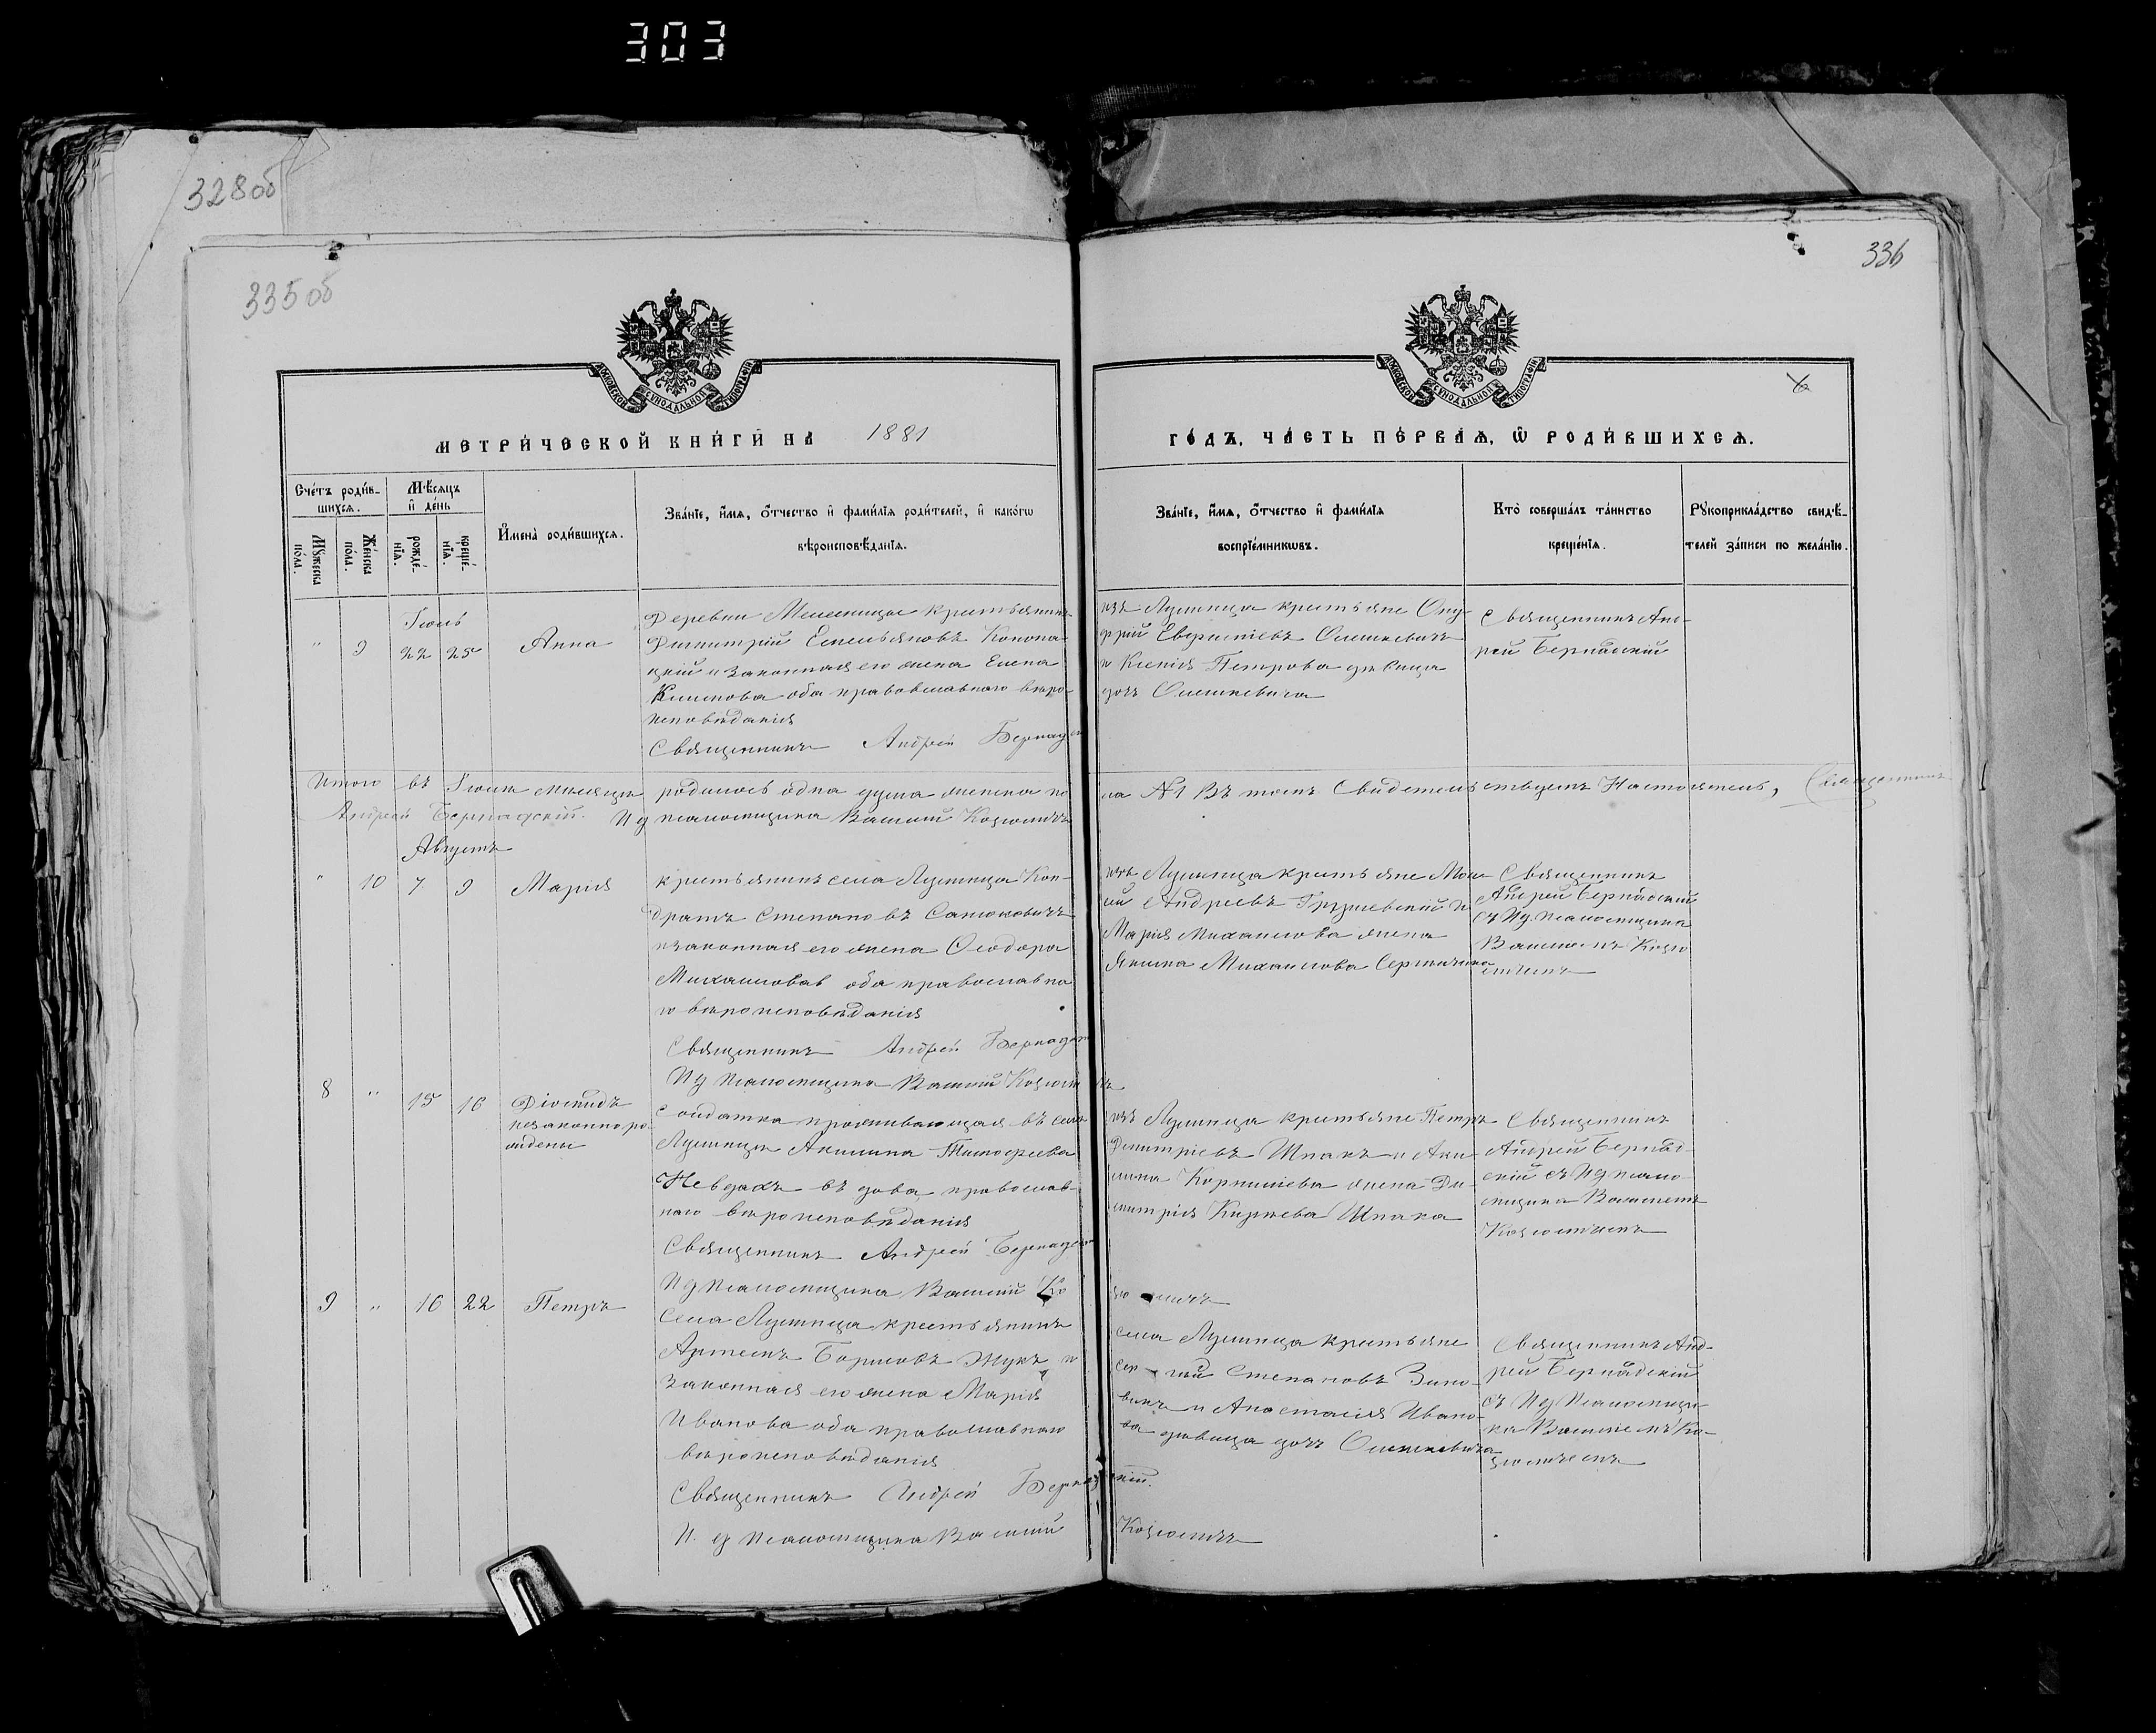 303
328об
335об
336
МОСКОВСКОЙ СѴНОДАЛЬНОЙ ТИПОГРАФІИ
МОСКОВСКОЙ СѴНОДАЛЬНОЙ ТИПОГРАФІИ
МЕТРИ́ЧЕСКОЙ КНИ́ГИ НА 1881
ГО́ДЪ, ЧА́СТЬ ПЕ́РВАѦ, Ѡ РОДИ́ВШИХСѦ.
Сче́тъ роди́в-
шихсѧ.
Мꙋ́жеска по́ла.
Же́нска по́ла.
Мѣ́сѧцъ
и҆ де́нь
рожде́-
нїѧ.
креще́-
нїѧ.
И҆мена̀ роди́вшихсѧ.
Зва́нїе, и҆́мѧ, ѻ҆́тчество и҆ фами́лїѧ роди́телей, и҆ како́гѡ
вѣроисповѣ́данїѧ.
Зва́нїе, и҆́мѧ, ѻ҆́тчество и҆ фами́лїѧ
воспрїе́мникѡвъ.
Кто̀ соверша́лъ та́инство
креще́нїѧ.
Рꙋкоприкла́дство свидѣ́-
телей за́писи по жела́нїю.
Іюль
" 9 22 25 Анна
Деревни крестьянинъ
Димитрій Емельяновъ Конопа-
цкій и законная его жена Елена
Климова оба православнаго вѣро-
исповѣданія
Священникъ Андрей Бернадск
изъ Лушница крестьяне Ону-
фрій Олешкевичъ
и Ксенія Петрова дѣвица
дочь Олешкевича
Священникъ Анд-
рей Бернадскій
Итого въ Іюлѣ мѣсяцѣ родилось одна душа женска по
ла №1 Въ томъ Свидетельствуетъ Настоятель, Священникъ
Андрей Бернадскій. И д псаломщика Василій
Августъ
" 10 7 9 Марія
крестьянинъ села Лушница Кон-
дратъ Степановъ
и законная его жена Ѳеодора
Михаилова оба православна
го вѣроисповѣданія
Священникъ Андрей Бернадск
И д псаломщика Василій
изъ Лушница крестьяне
Андреевъ и
Марія Михаилова жена
Якима Михаилова
Священникъ
Андрей Бернадский
съ И д. псаломщика
8 " 15 16 Діомидъ
незаконноро
жденъ
Солдатка проживающая въ селѣ
Лушницѣ Акилина Тимофеева
вдова православ-
наго вѣроисповѣданія
Священникъ Андрей Бернадск
И д псаломщика Василій
изъ Лушница крестьяне Петръ
Димитріевъ Шпакъ и Аки
лина Корнилиева жена Ди
митрія Шпака
Священникъ
Андрей Бернад-
скій съ И д псало-
мщика
9 " 16 22 Петръ
Села Лушница крестьянинъ
Артемъ Борисовъ Жукъ и
законная его жена Марія
Иванова оба православнаго
вѣроисповѣданія
Священникъ Андрей Бернадскій.
И. д псаломщика Василій
села Лушница крестьяне
Степановъ Зино-
викъ и Анастасія Ивано-
ва дѣвица дочь Олешкевича
Священникъ Анд-
рей Бернадскій
съ И д псаломщи-